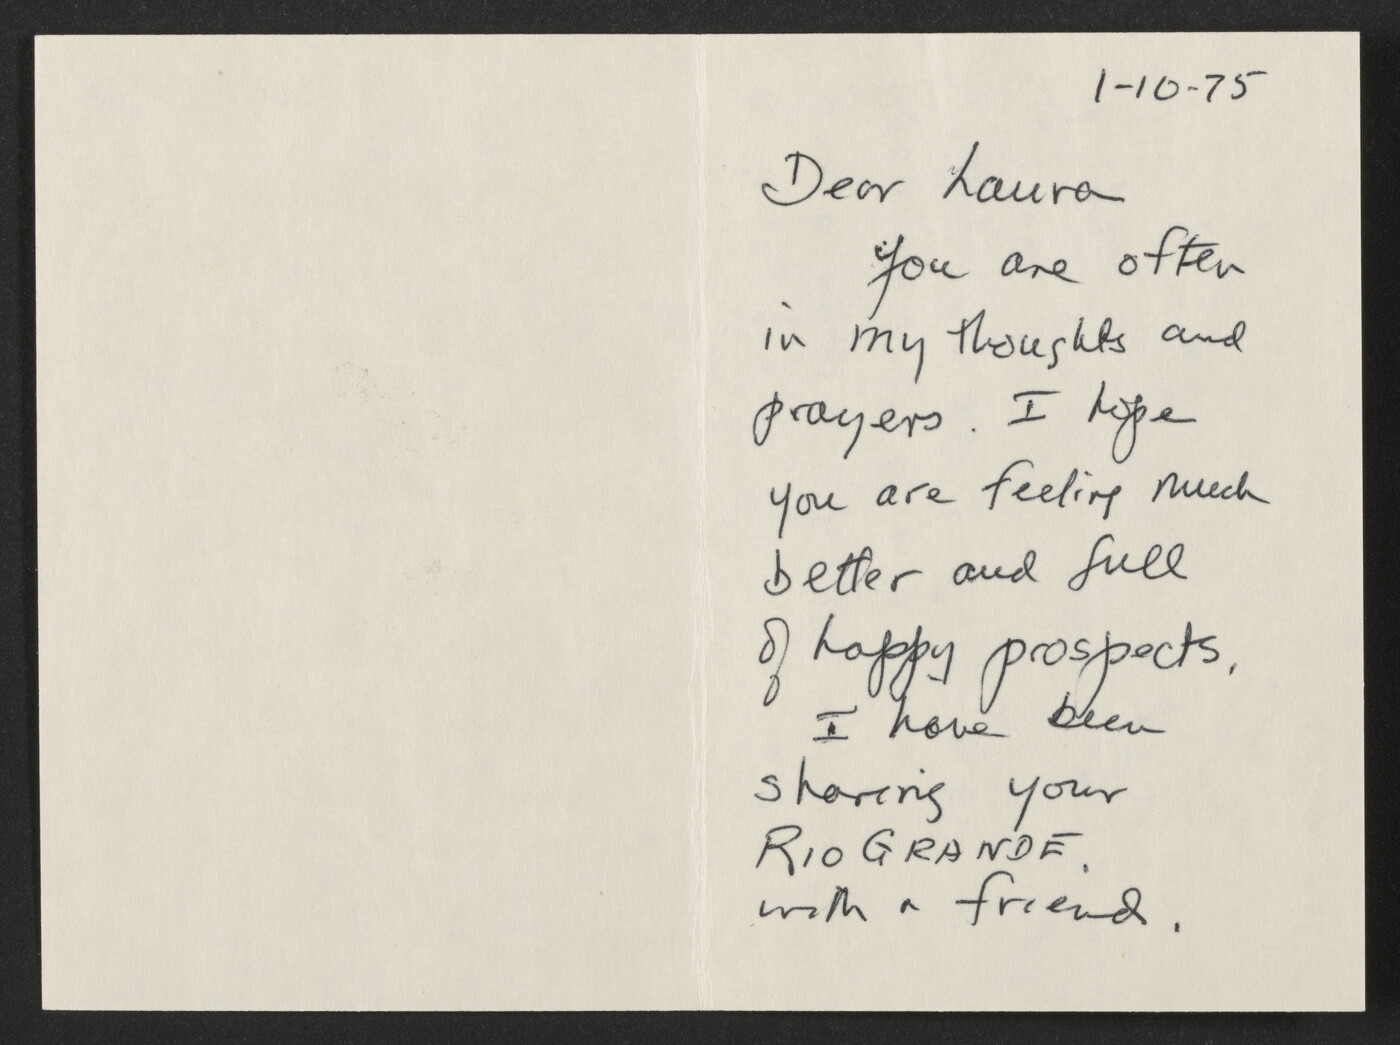 1-10-75
Dear Laura
You are often
in my thoughts and
prayers. I hope
you are feeling much
better and full
of happy prospects.
I have been
sharing your
RIO GRANDE.
with a friend.